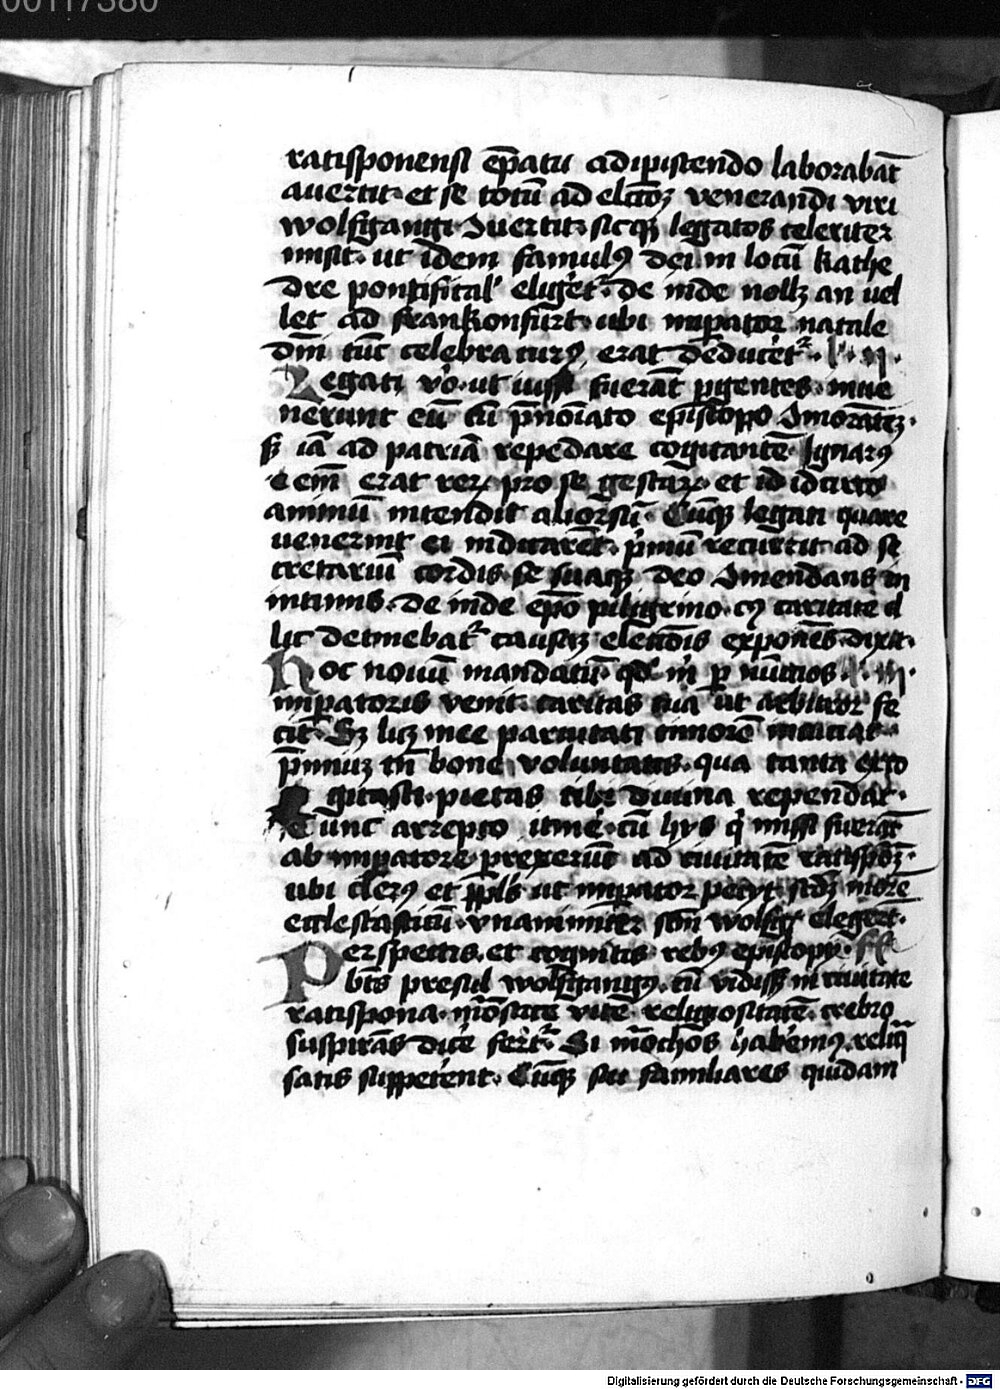 00117380
ratisponensi ep̄atu adipistendo laborabāt
auertit et se totū ad elc̄coꝫ venerandi viri
wolfgangi ꝯuertit sicqꝫ legatos celeriter
misit ut idem famulꝰ dei in locū kathe
dre pontifical' eliget᷑ de inde nollꝫ an uel
let ad frankonfurt ubi impator natale
dm̄ tūc celebraturꝰ erat deducet᷑ l' ij
Legati vo ut iussi fuerāt pgentes inue
nerunt eū cū p̄noīato episcopo ꝯmorātē
sꝫ iā ad patriā repedare cogitantē Ignarꝰ
eīm erat reꝝ pro se gestaꝝ et id idcirco
animū intendit aliorsū Cūqꝫ legati quare
uenerint ei indicarēt p̄mū recurrit ad se
cretariū cordis se suaqꝫ deo ꝯmendans in
intimis de inde epō piligrino cꝰ caritate il
lic detinebat᷑ causaꝫ elc̄cōis exponēs dixit
Hoc nouū mandatū qd' m̄ p nūtios l' iij
impatoris venit caritas tua ut arbitror fe
cit Sꝫ licꝫ mee paruitati timorē incutiat
p̄miuꝫ tn̄ bone voluntatis qua tanta exco
gitasti pietas tibi diuina rependat
Tunc arrepto itīe cū hys q̄ missi fuerāt
ab impatore prexerūt ad ciuitatē ratispoꝫ
ubi clerꝰ et ppl's ut impator pecijt scdꝫ morē
ecclesiasticū vnanimiter sctm̄ wolfgg elegert
Perspectis et cognitis rebꝰ episcopij
btūs presul wolfgangꝰ cū vidissꝫ in ciuitate
ratispona mōstice vite religiositatē crebro
suspirās dicē fert᷑ Si mōchos haberemꝰ reliq̄
satis suppeterent Cūqꝫ sui familiares quidam
Digitalisierung gefördert durch die Deutsche Forschungsgemeinschaft - DFG